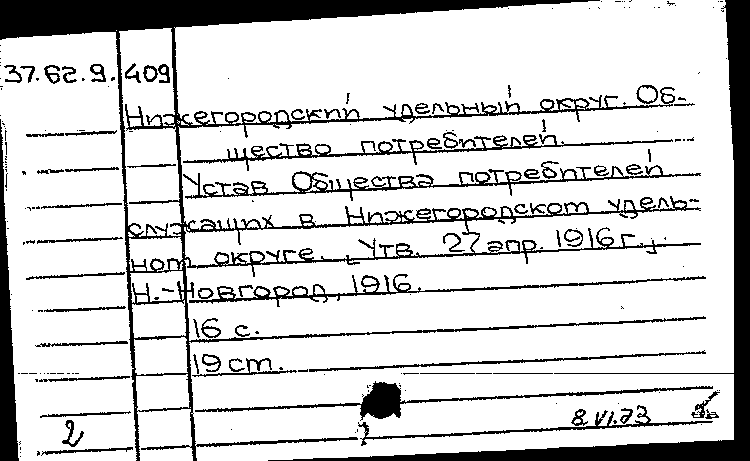 37.62.9. 409
Нижегородский удельный округ. Об-
щество потребителей.
Устав Общества потребителей
служащих в Нижегородском удель-
ном округе. [Утв. 27 апр. 1916 г.].
Н.-Новгород, 1916.
16 с.
19 cm.
8.VI.73
2